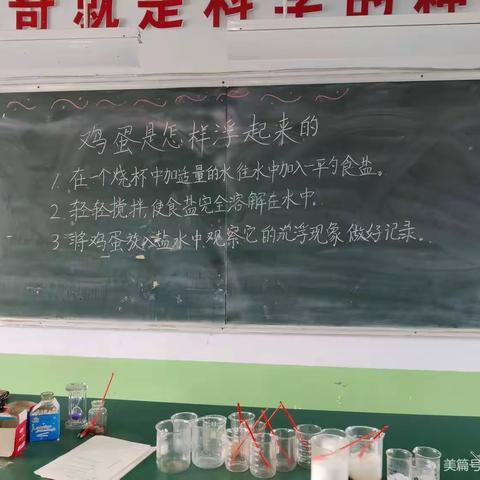 奇就是科学的种
鸡蛋是怎样浮起来的
1. 在一个烧杯中加适量的水往水中加入一平勺食盐。
2. 轻轻搅拌,使食盐完全溶解在水中.
3. 将鸡蛋放入盐水中观察它的沉浮现象做好记录。
美篇号